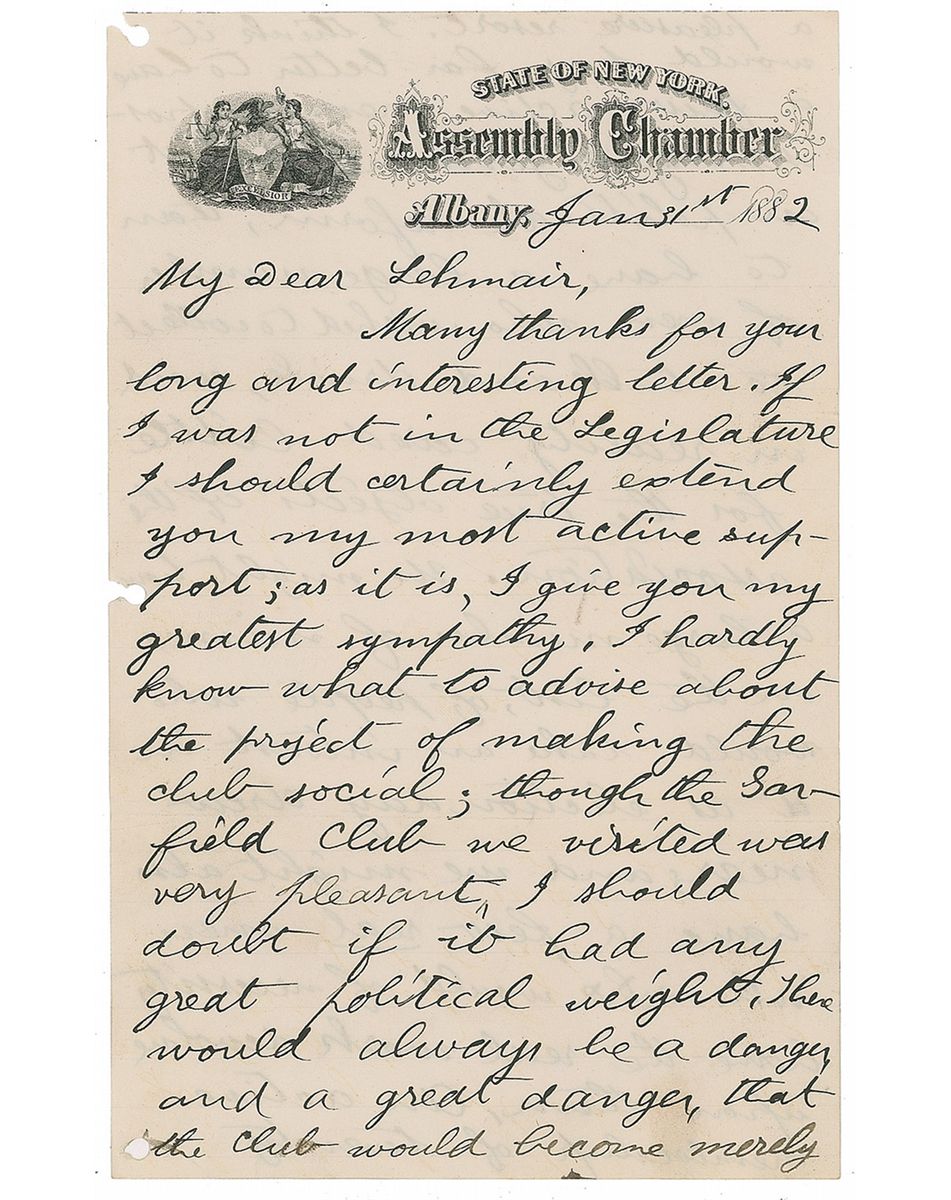 STATE OF NEW YORK.
Assembly Chamber
EXCELSIOR
Albany, Jan 31st 1882
My Dear Lehmair,
Many thanks for your
long and interesting letter. If
I was not in the Legislature
I should certainly extend
you my most active sup-
port; as it is, I give you my
greatest sympathy. I hardly
know what to advise about
the project of making the
club social; though the Gar-
field Club we visited was
very pleasant, I should
doubt if it had any
great political weight. There
would always be a danger,
and a great danger, that
the club would become merely